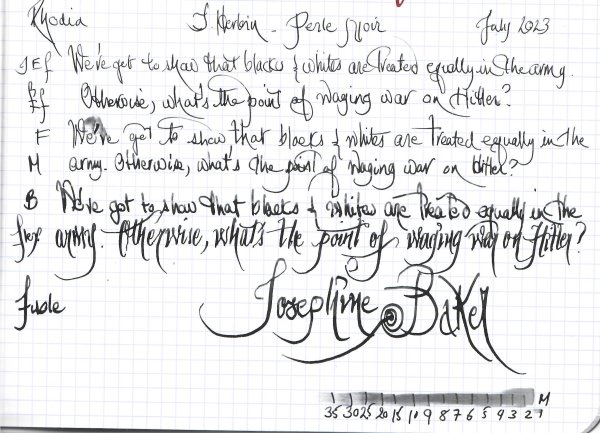 Rhodia J. Herbin - Perle Noir July 2023
EF We've got to show that blacks & whites are treated equally in the army.
EF Otherwise, what's the point of waging war on Hitler?
F We've got to show that blacks & whites are treated equally in the
M army. Otherwise, what's the point of waging war on Hitler?
B We've got to show that blacks & whites are treated equally in the
army. Otherwise, what's the point of waging war on Hitler?
fude Josephine Baker
M
35 30 25 20 15 10 9 8 7 6 5 4 3 2 1